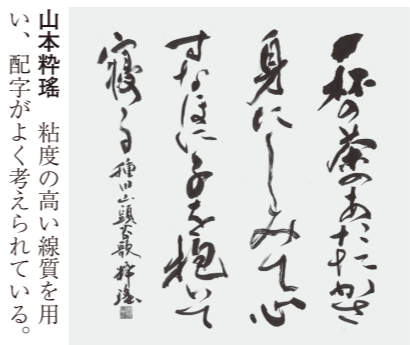 一杯の茶のあたたかさ
身にしみて心
すなほに子を抱いて
寝る 種田山頭火歌 粋瑤
山本粋瑤 粘度の高い線質を用
い、配字がよく考えられている。